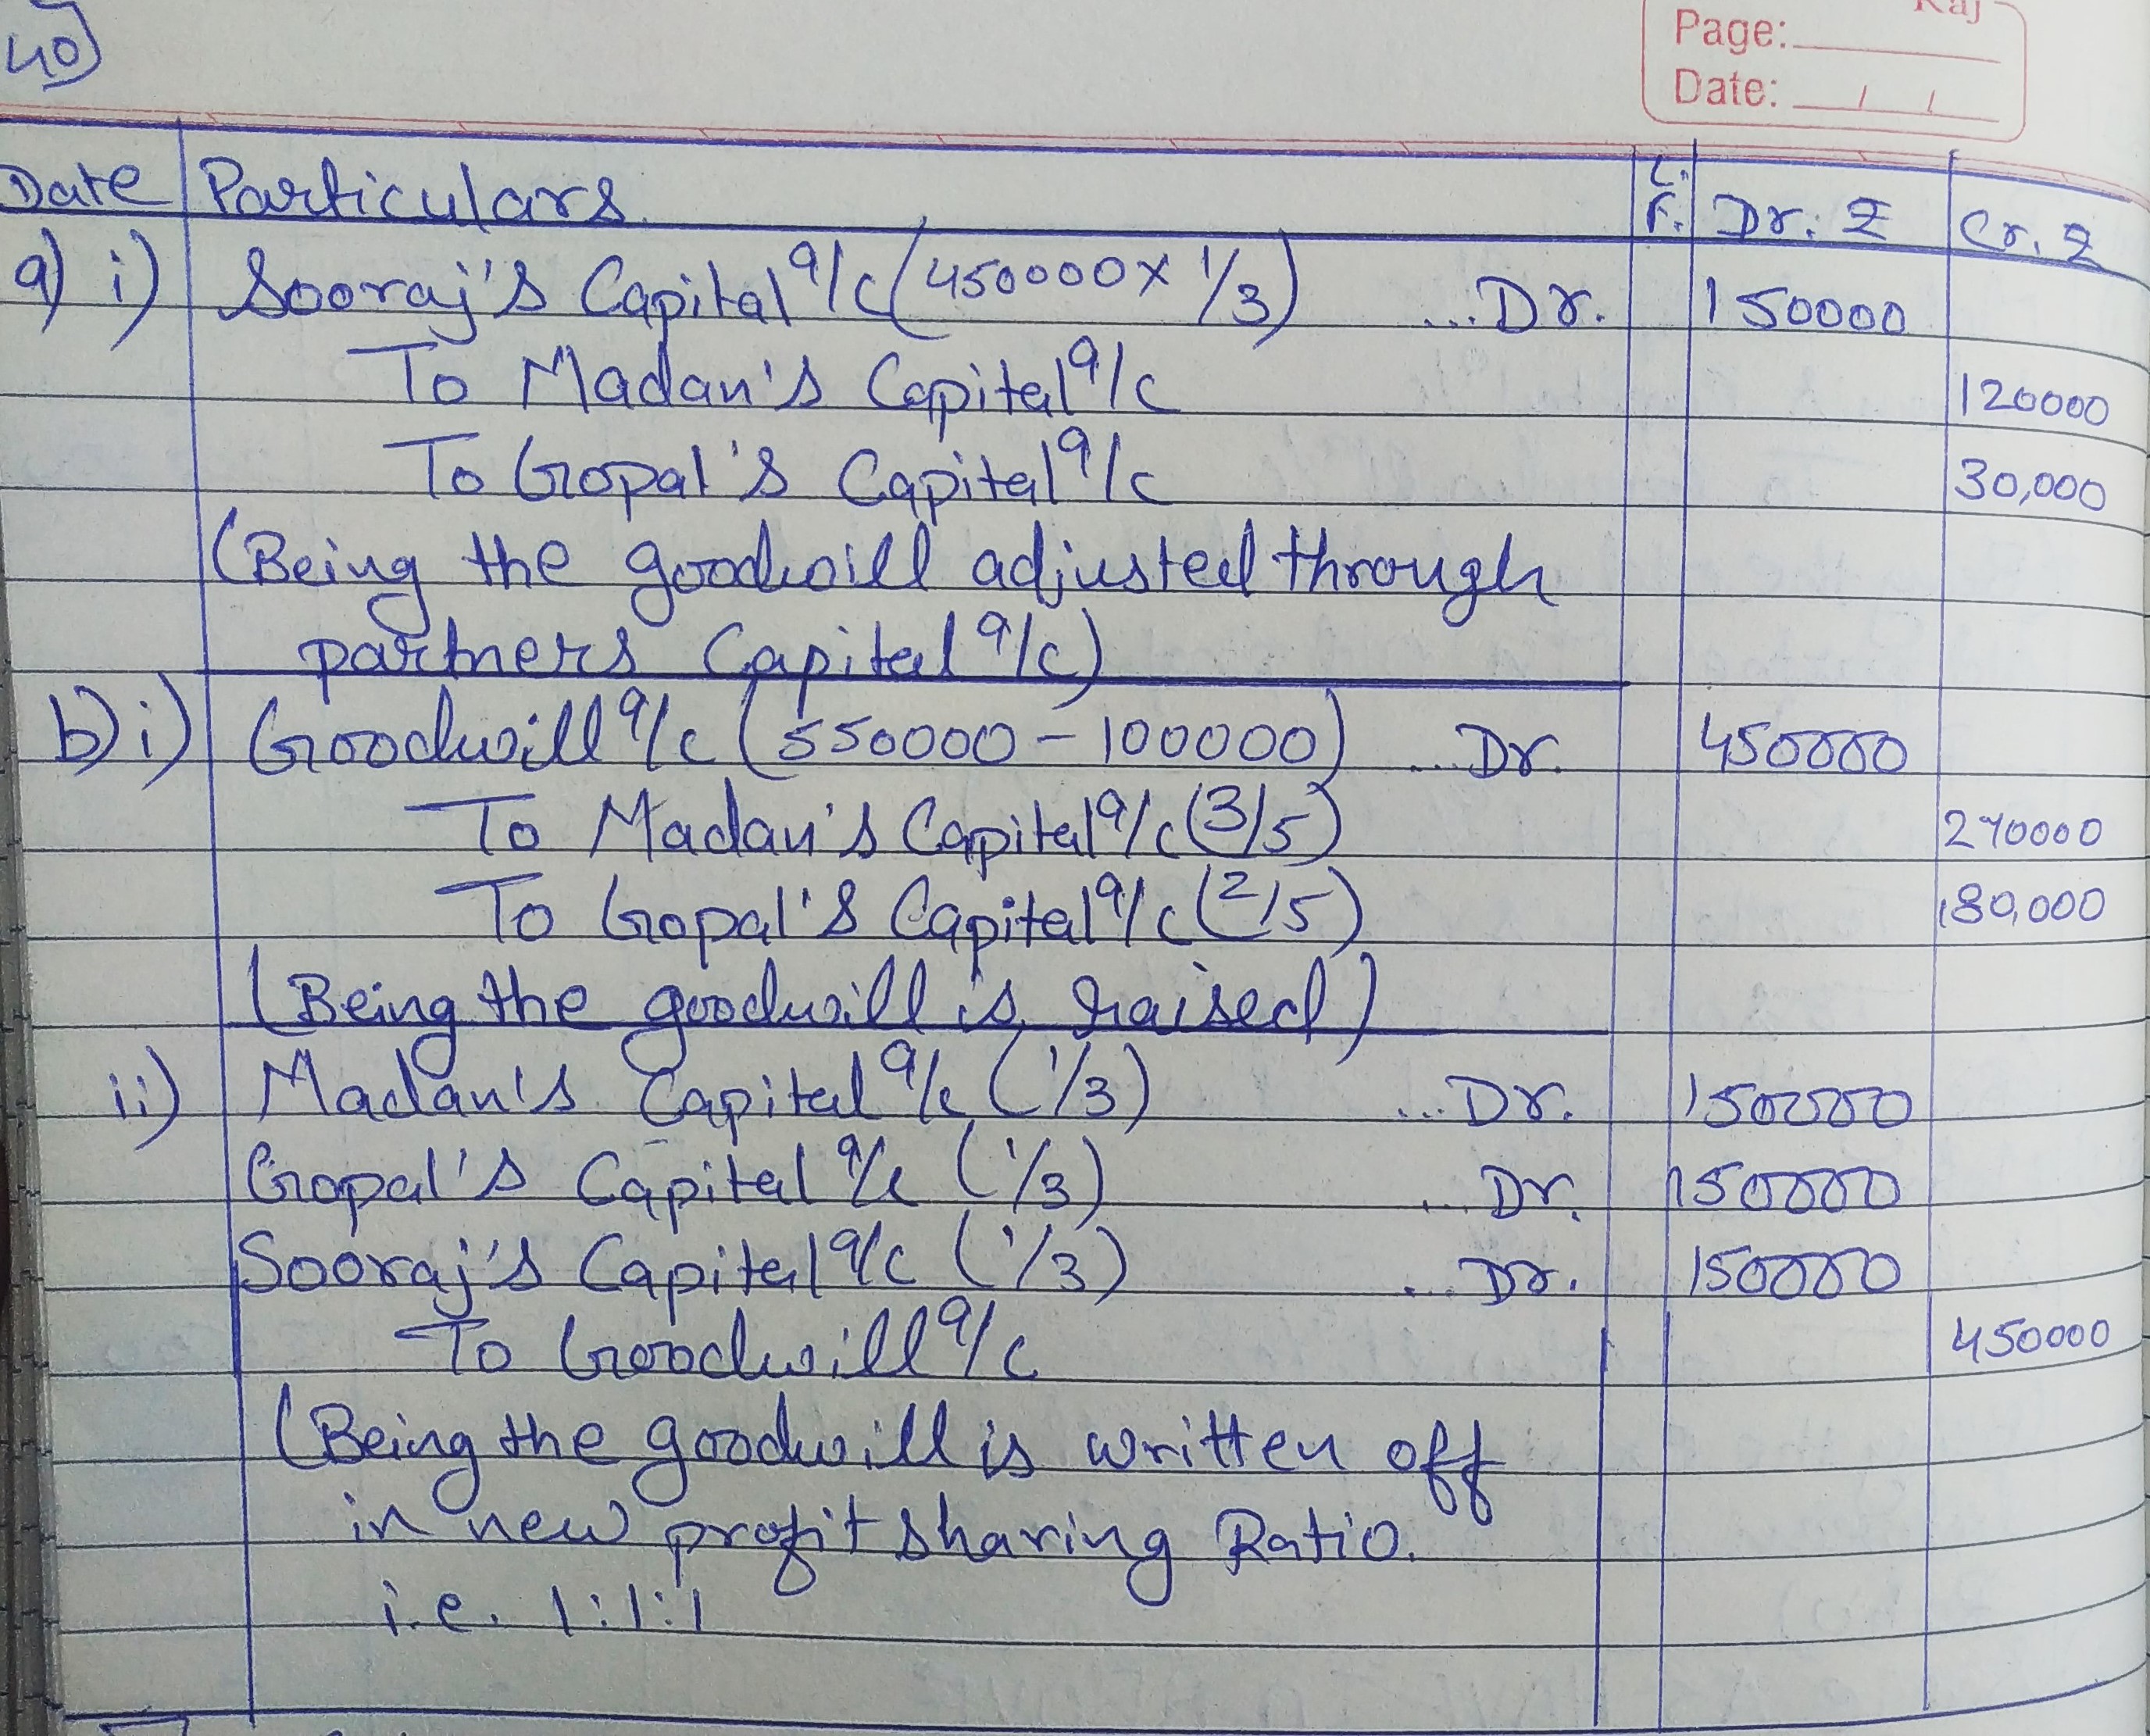 40)
Raj
Page:
Date: / /
Date Particulars L.F. Dr. ₹ Cr. ₹
a) i) Sooraj's Capital a/c (450000 × 1/3) ...Dr. 150000
To Madan's Capital a/c 120000
To Gopal's Capital a/c 30,000
(Being the goodwill adjusted through
partners Capital a/c)
b) i) Goodwill a/c (550000 - 100000) ...Dr. 450000
To Madan's Capital a/c (3/5) 270000
To Gopal's Capital a/c (2/5) 180,000
(Being the goodwill is raised)
ii) Madan's Capital a/c (1/3) ...Dr. 150000
Gopal's Capital a/c (1/3) ...Dr. 150000
Sooraj's Capital a/c (1/3) ...Dr. 150000
To Goodwill a/c 450000
(Being the goodwill is written off
in new profit sharing Ratio.
i.e. 1:1:1